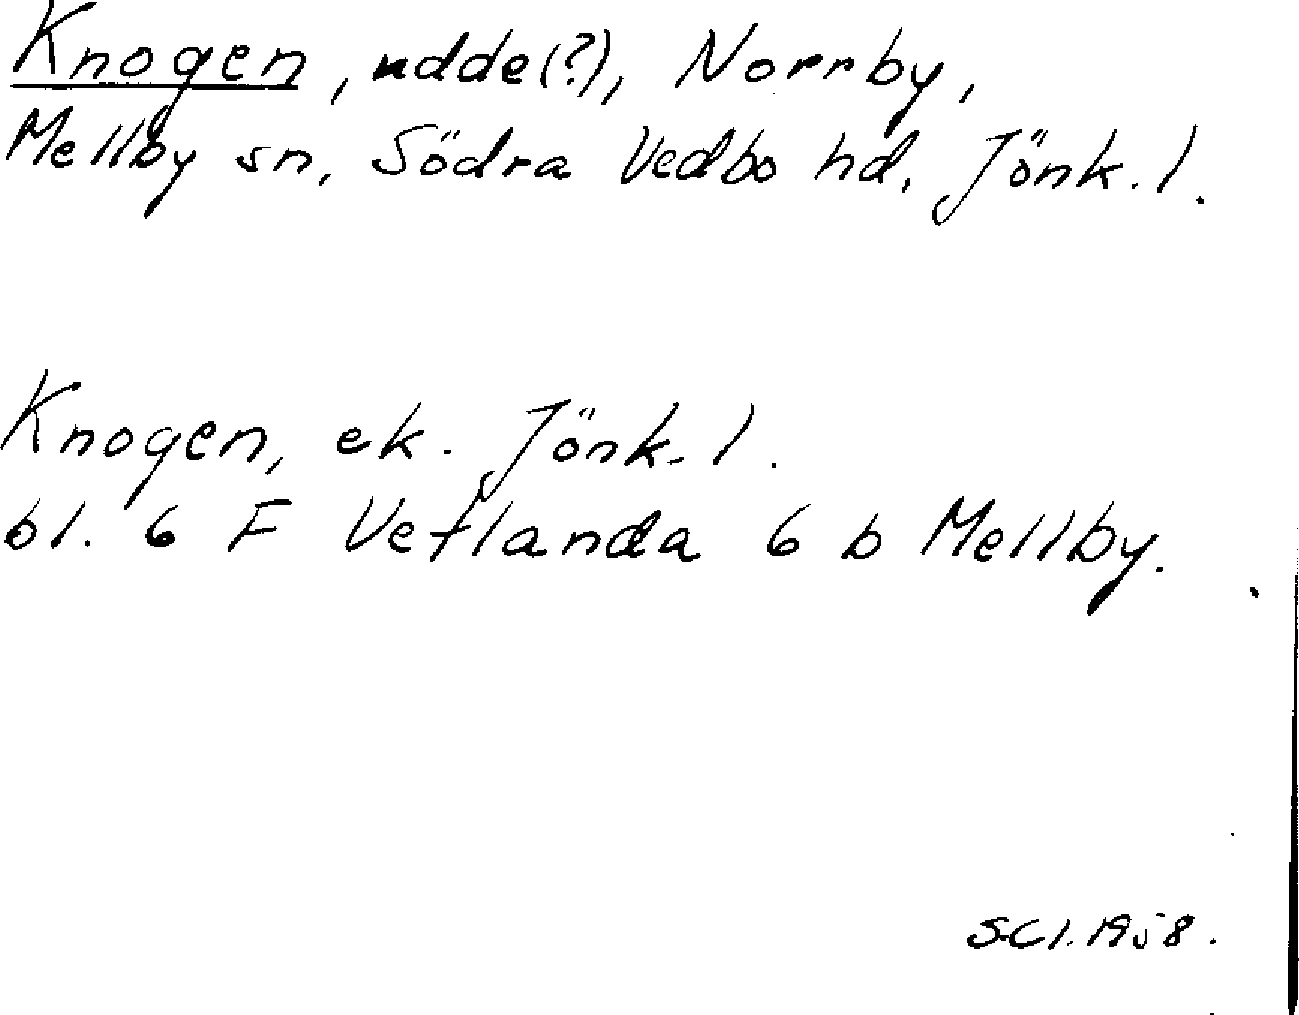 Knogen, udde(?), Norrby,
Mellby sn, Södra Vedbo hd, Jönk. l.
Knogen, ek. Jönk. l.
bl. 6 F Vetlanda 6 b Mellby.
S.Cl. 1958.